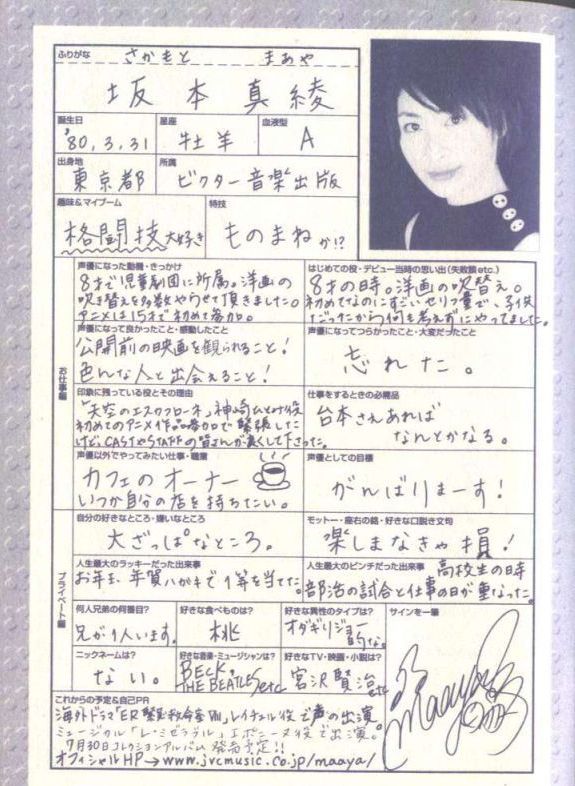 ふりがな さかもと まあや
坂本真綾
誕生日 星座 血液型
'80.3.31 牡羊 A
出身地 所属
東京都 ビクター音楽出版
趣味&マイブーム 特技
格闘技大好き ものまねか!?
お仕事編
声優になった動機・きっかけ
8才で児童劇団に所属。洋画の
吹き替えを多数やらせて頂きました。
アニメは15才で初めて参加。
はじめての役・デビュー当時の思い出(失敗談etc.)
8才の時。洋画の吹替え。
初めてなのにすごいセリフ量で、子役
だったから何も考えずにやってました。
声優になって良かったこと・感動したこと
公開前の映画を観られること!
色んな人と出会えること!
声優になってつらかったこと・大変だったこと
忘れた。
印象に残っている役とその理由
「天空のエスカフローネ」神崎ひとみ役
初めてのアニメ作品参加で緊張した
けど、CASTやSTAFFの皆さんが良くして下さった。
仕事をするときの必需品
台本さえあれば
なんとかなる。
声優以外でやってみたい仕事・職業
カフェのオーナー
いつか自分の店を持ちたい。
声優としての目標
がんばりまーす!
プライベート編
自分の好きなところ・嫌いなところ
大ざっぱなところ。
モットー・座右の銘・好きな口説き文句
楽しまなきゃ損!
人生最大のラッキーだった出来事
お年玉、年賀ハガキで1等を当てた。
人生最大のピンチだった出来事 高校生の時
部活の試合と仕事の日が重なった。
何人兄弟の何番目?
兄が1人います。
好きな食べものは?
桃
好きな異性のタイプは?
オダギリジョー
的な。
サインを一筆
Maaya
ニックネームは?
ない。
好きな音楽・ミュージシャンは?
BECK.
THE BEATLES etc
好きなTV・映画・小説は?
宮沢賢治
etc
これからの予定&自己PR
海外ドラマ「ER緊急救命室Ⅷ」レイチェル役で声の出演。
ミュージカル「レ・ミゼラブル」エポニーヌ役で出演。
7月30日コレクションアルバム発売予定!!
オフィシャルHP→www.jvcmusic.co.jp/maaya/